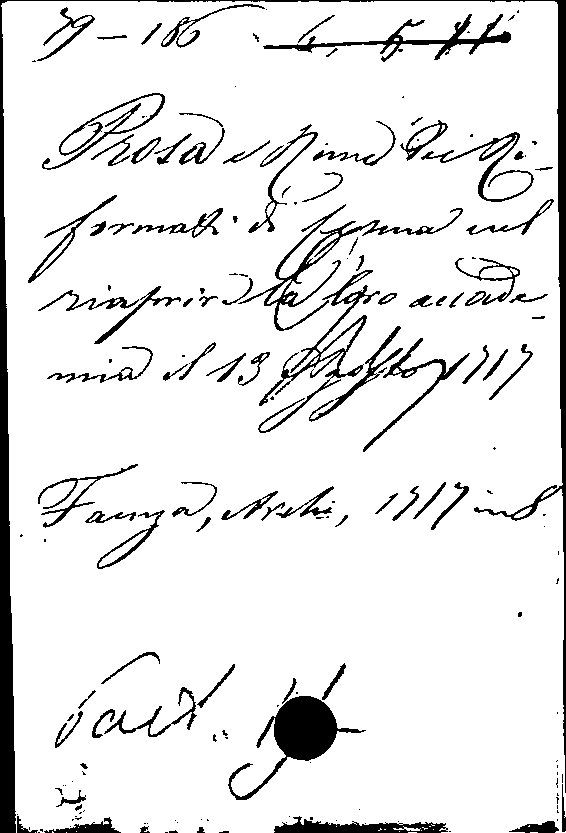 79 - 186 6. 5. 11
Prosa e Rime dei Ri-
formati di Cesena nel
riaprire la loro accade-
mia il 13 Agosto 1717
Faenza, Archi, 1717 in 8.